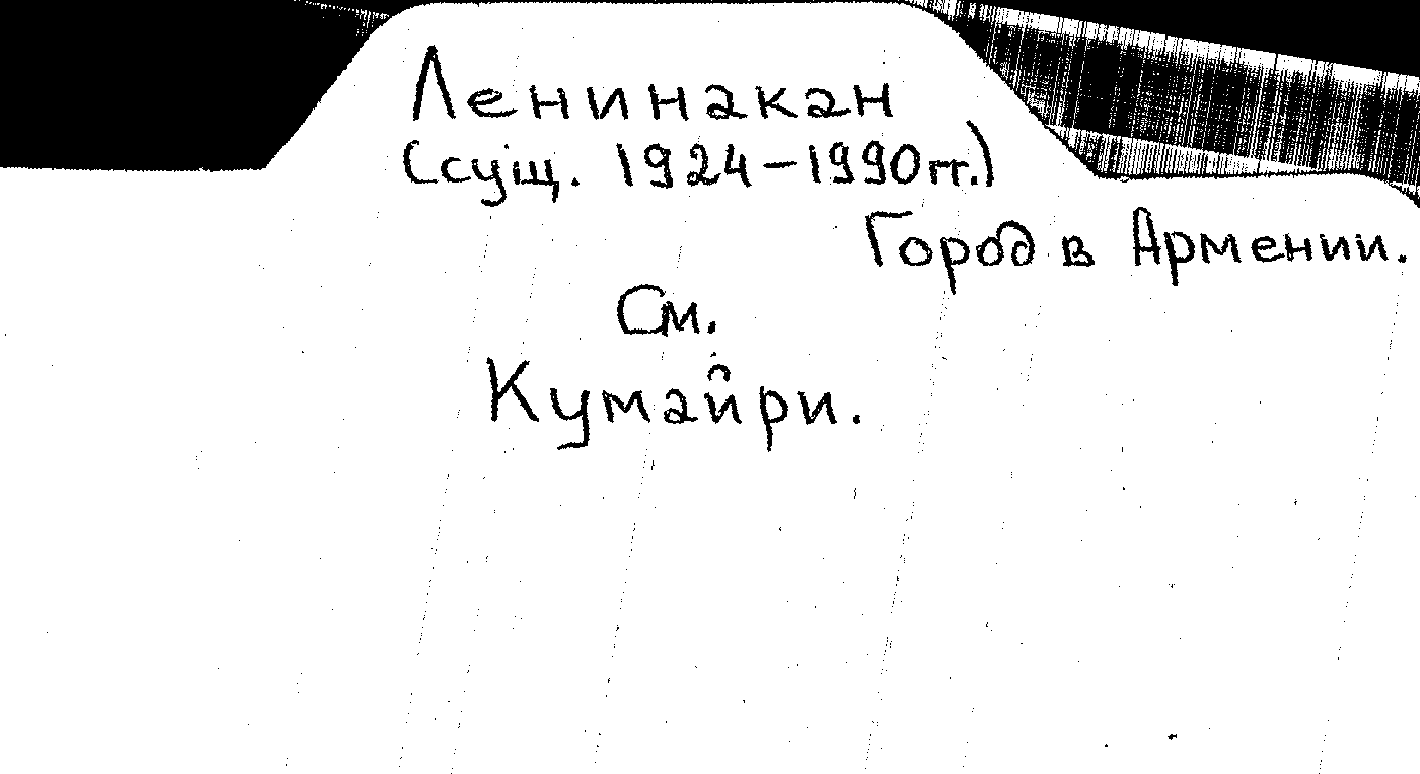 Ленинакан
(сущ. 1924-1990гг.)
Город в Армении.
См.
Кумайри.